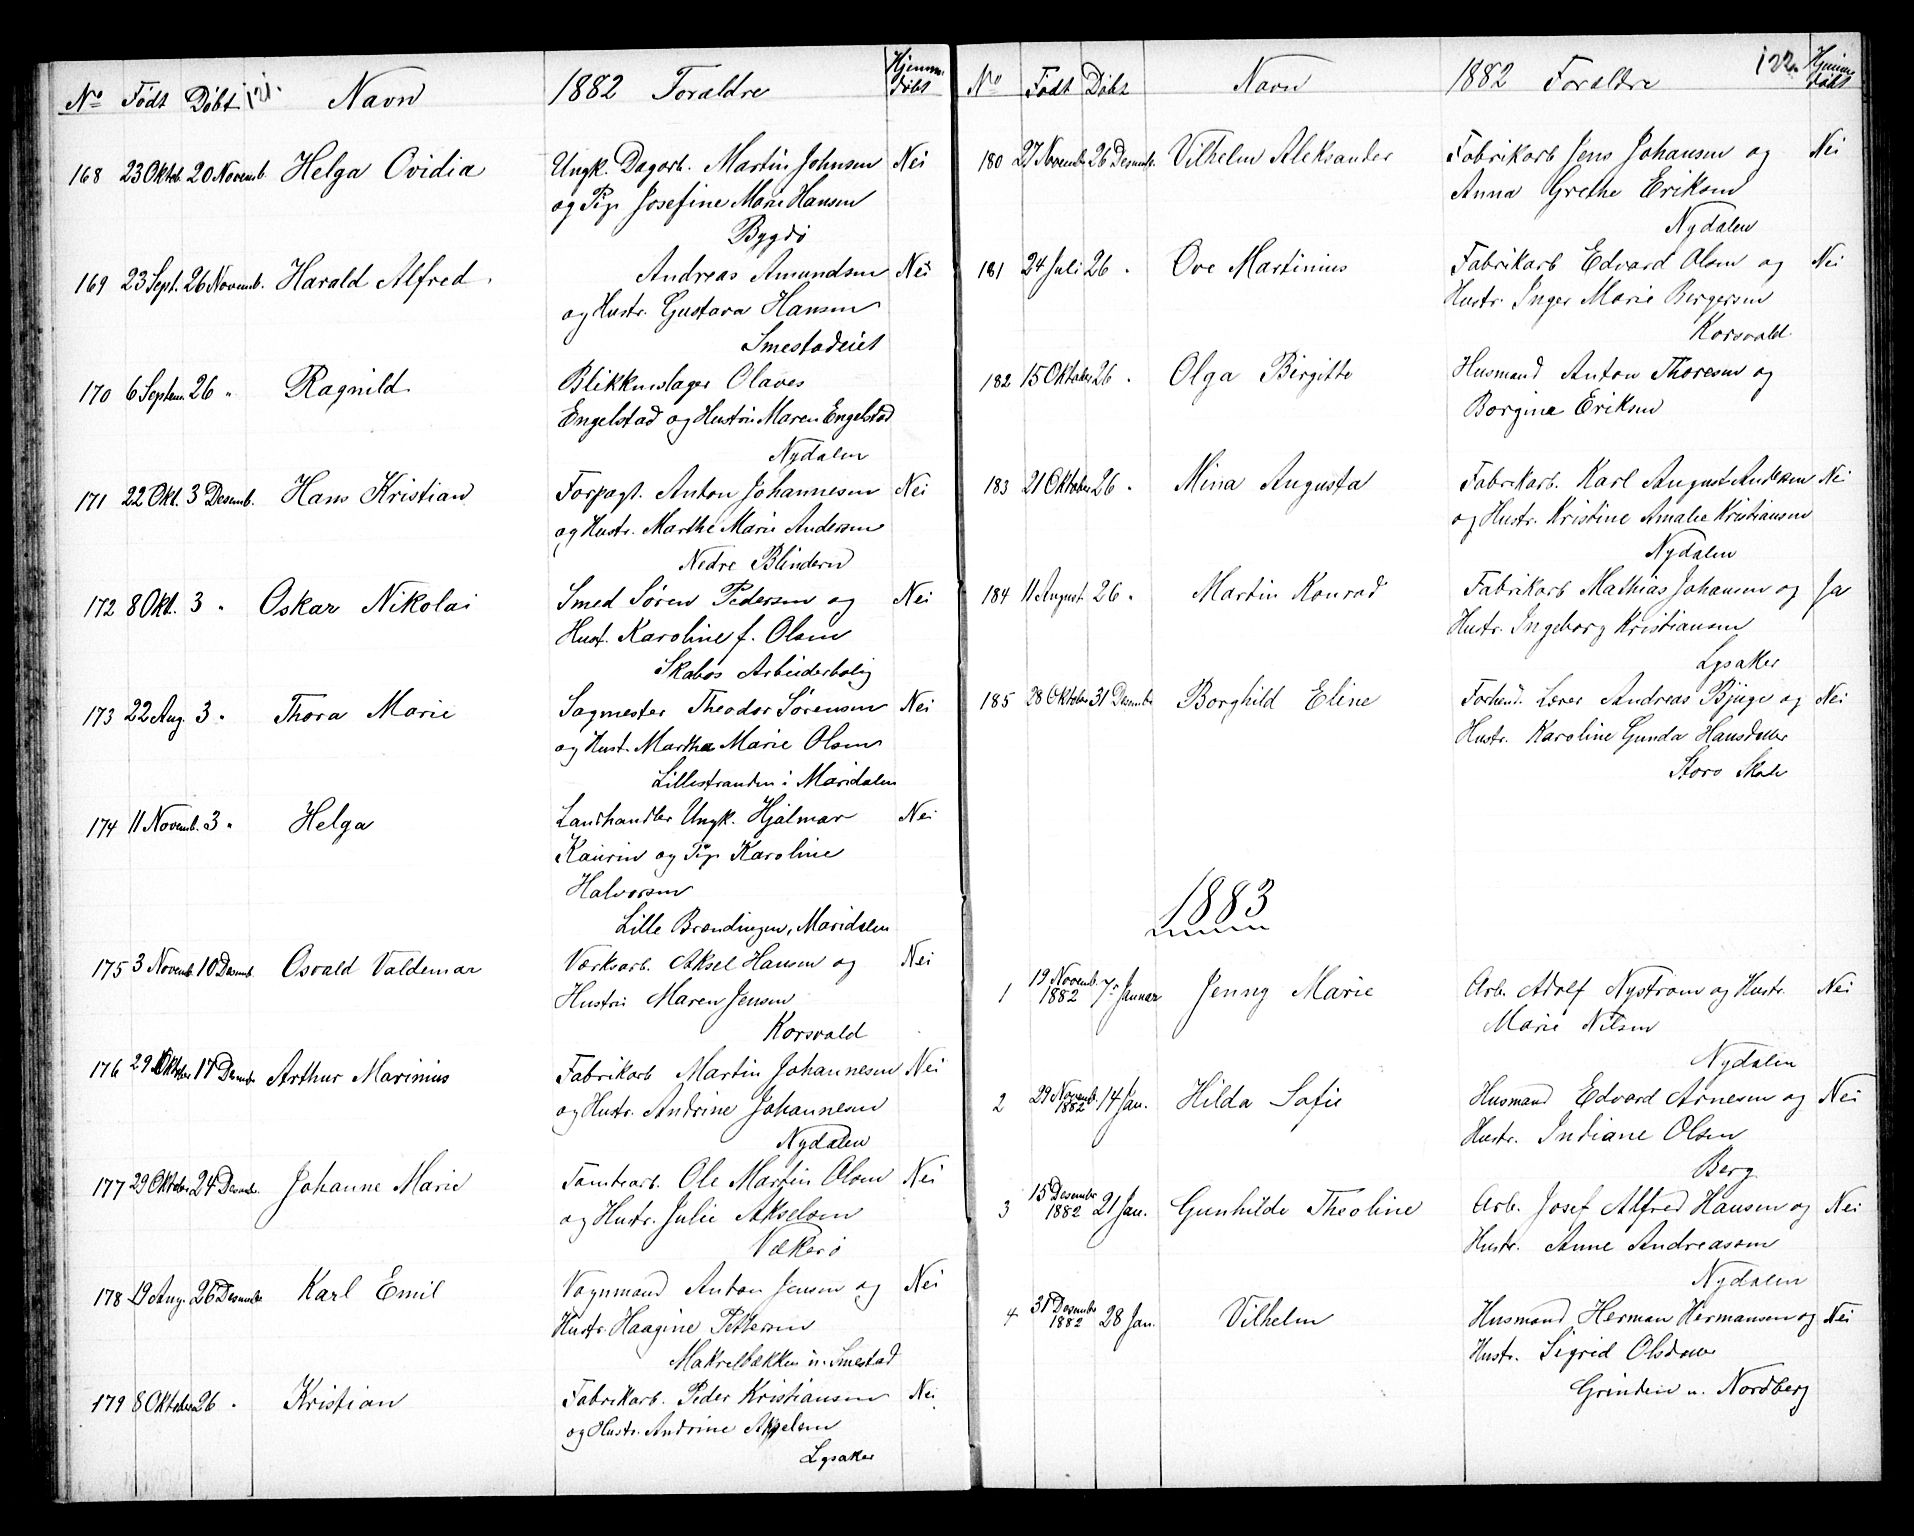 No Født Døbt 121. Navn 1882 Foraldre Hjemmedøbt
168 23 Oktob. 20 Novemb. Helga Ovidia Ungk. Dagarb. Martin Johnsen Nei
og Pige Josefine Marie Hansen
Bygdø
169 23 Sept. 26 Novemb. Harald Alfred Andreas Amundsen Nei
og Hustr. Gustava Hansen
Smestadeiet
170 6 Septem. 26 " Ragnild Blikkenslager Olaves
Engelstad og Hustru Maren Engelstad
Nydalen
171 22 Okt. 3 Desemb. Hans Kristian Forpagt. Anton Johannesen Nei
og Hustr. Marthe Marie Andersen
Nedre Blindern
172 8 Okt. 3 " Oskar Nikolai Smed Søren Pedersen og Nei
Hust. Karoline f. Olsen
Skabos Arbeiderbolig
173 22 Aug. 3 " Thora Marie Sagmester Theodor Sørensen Nei
og Hust. Marthe Marie Olsen
Lillestranden i Maridalen
174 11 Novemb. 3 " Helga Landhandler Ungk. Hjalmar Nei
Kaurin og Pige Karoline
Halvorsen
Lille Brændingen, Maridalen
175 3 Novemb. 10 Desemb. Osvald Valdemar Værksarb. Aksel Hansen og Nei
Hustru Maren Jensen
Korsvald
176 29 Oktober 17 Desember Arthur Marinius Fabrikarb Martin Johannesen Nei
og Hustr. Andrine Johannesen
Nydalen
177 29 Oktober 24 Desemb. Johanne Marie Tomtearb. Ole Martin Olsen Nei
og Hustr. Julie Akselsen
Vækerø
178 19 Aug. 26 Desember Karl Emil Vognmand Anton Jensen og Nei
Hustr. Haagine Pettersen
Makrelbækken u. Smestad
179 8 Oktober 26 " Kristian Fabrikarb. Peder Kristiansen Nei
og Hustr. Andrine Akselsen
Lysaker
No Født Døbt Navn 1882 Foraldre 122. Hjemmedøbt
180 27 Novembr 26 Desemb. Vilhelm Aleksander Fabrikarb Jens Johansen og Nei
Anna Grethe Eriksen
Nydalen
181 24 Juli 26 " Ove Martinius Fabrikarb Edvard Olsen og Nei
Hustr. Inger Marie Bergersen
Korsvald
182 15 Oktober 26 " Olga Birgitte Husmand Anton Thoresen og
Borgine Eriksen
183 21 Oktober 26 " Mina Augusta Fabrikarb. Karl August Andersen Nei
og Hustr. Kristine Amalie Kristiansen
Nydalen
184 11 August 26 " Martin Konrad Fabrikarb Mathias Johansen og Ja
Hustr. Ingeborg Kristiansen
Lysaker
185 28 Oktober 31 Desember Borghild Eline Forhend. Lærer Andreas Bjuge og Nei
Hustr. Karoline Gunda Hansdatter
Storo Skole
1883
1 19 Novemb. 1882 7 Januar Jenny Marie Arb. Adolf Nystrøm og Hustr. Nei
Marie Nilsen
Nydalen
2 29 Novemb. 1882 14 Jan. Hilda Sofie Husmand Edvard Arnesen og Nei
Hustr. Indiane Olsen
Berg
3 15 Desember 1882 21 Jan. Gunhilde Theoline Arb. Josef Alfred Hansen og Nei
Hustr. Anne Andreassen
Nydalen
4 31 Desember 1882 28 Jan. Vilhelm Husmand Herman Hermansen og Nei
Hustr. Sigrid Olsdatter
Grinden u. Nordberg